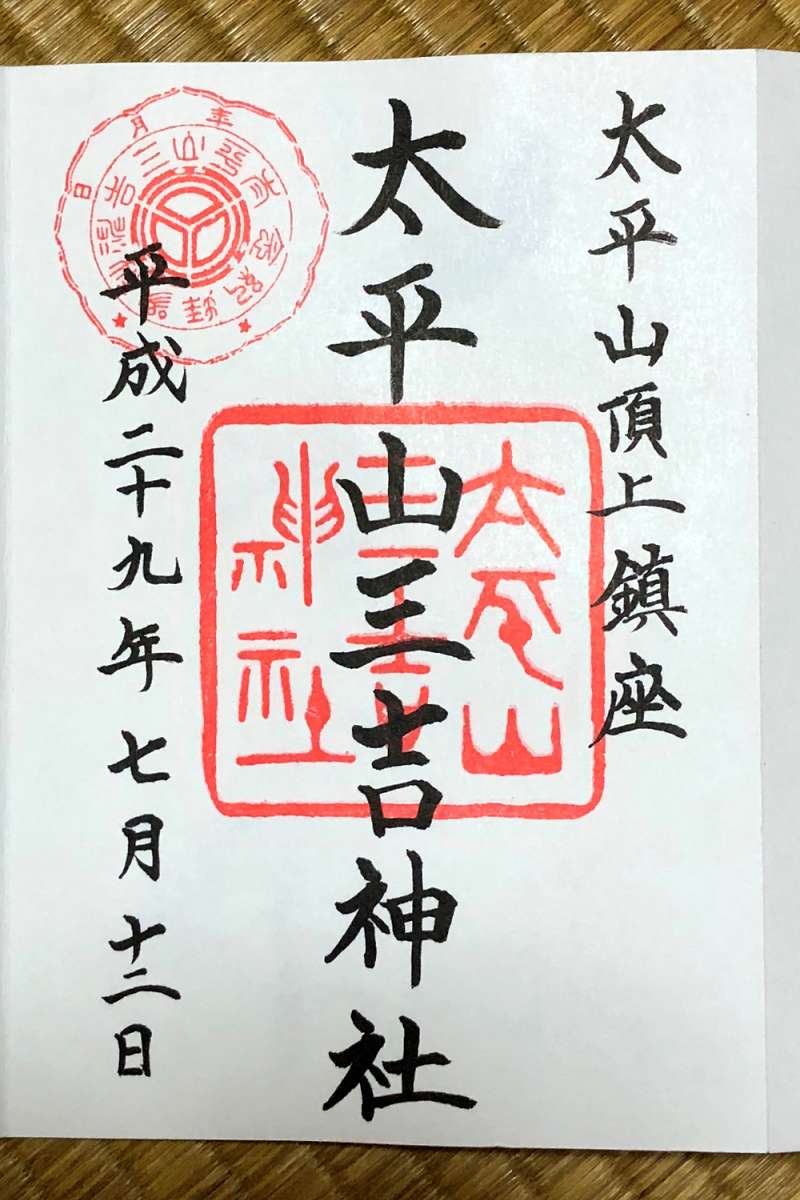 太平山頂上鎮座
太平山三吉神社
平成二十九年七月十二日
太平山
三吉
神社
年
月
日